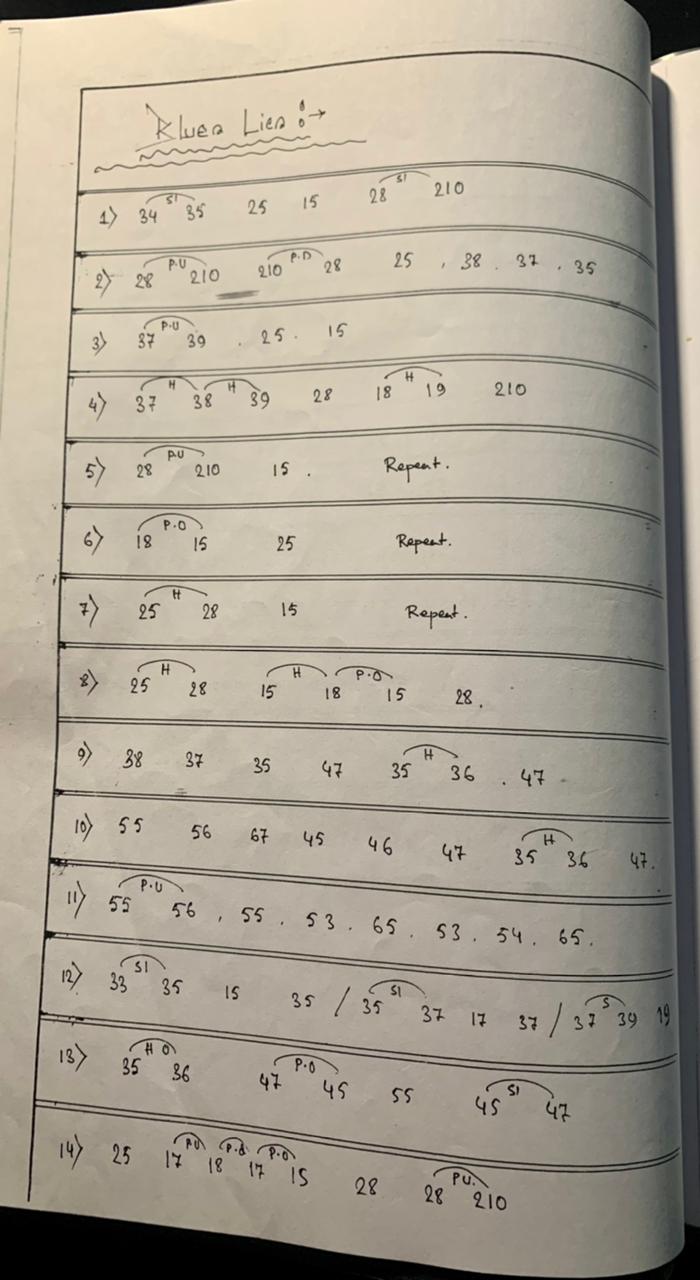 Blues Lics :→
1) 34 Sl 35 25 15 28 Sl 210
2) 28 P.U 210 210 P.D 28 25 , 38 . 37 . 35
3) 37 P.U 39 . 25 . 15
4) 37 H 38 H 39 28 18 H 19 210
5) 28 P.U 210 15 . Repeat.
6) 18 P.O 15 25 Repeat.
7) 25 H 28 15 Repeat.
8) 25 H 28 15 H 18 P.O 15 28 .
9) 38 37 35 47 35 H 36 . 47
10) 55 56 67 45 46 47 35 H 36 47.
11) 55 P.U 56 , 55 . 53 . 65 . 53 . 54 . 65 .
12) 33 Sl 35 15 35 / 35 Sl 37 17 37 / 37 S 39 19
13) 35 H O 36 47 P.O 45 55 45 Sl 47
14) 25 17 P.U 18 P.d 17 P.O 15 28 28 P.U. 210